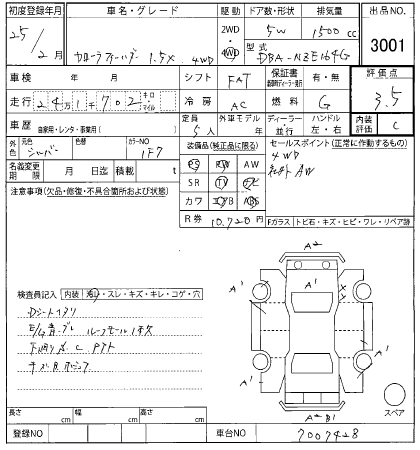 初度登録年月 車名・グレード 駆動 ドア数・形状 排気量 出品NO
25年 2月 カローラフィールダー 1.5X 4WD
2WD・4WD 5W 1500cc 3001
型式 DBA-NZE164G
車検 年 月 シフト FAT 保証書 有・無 評価点
走行 24万1千702 キロ マイル 冷房 AC 燃料 G 3.5
車歴 自家用・レンタ・事業用( ) 定員 5人 外車モデル 年 ディーラー 並行 ハンドル 左・右 内装評価 C
外色 元色 シルバー 色替 カラーNO 1F7
装備品(純正品に限る) セールスポイント(正常に作動するもの)
PS PW AW 4WD
名義変更期限 月 日迄 積載 t
SR TV ナビ 社外AW
注意事項(欠品・修復・不具合箇所および状態)
カワ エアB ABS
R券 10,720円 Fガラス トビ石・キズ・ヒビ・ワレ・リペア跡
A2
A1
A'
A'
検査員記入 内装 汚レ・スレ・キズ・キレ・コゲ・穴
Dシート
ルーフモール
下廻り C
A'
A'
A2B1
スペア
長さ cm 幅 cm 高さ cm
登録NO 車台NO 7007428